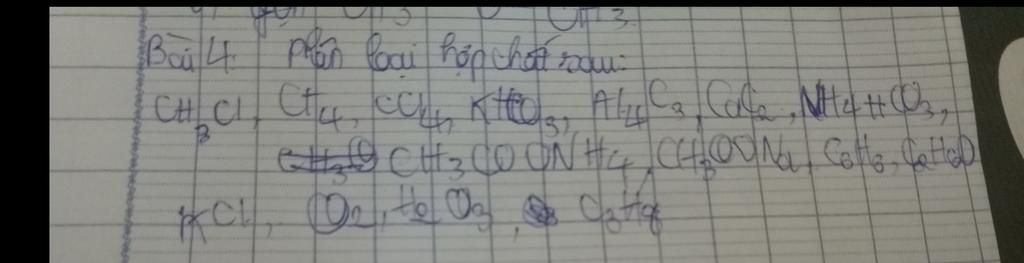 Bài 4. Phân loại hợp chất sau:
CH3Cl, CH4, CCl4, KHCO3, Al4C3, CaC2, NH4HCO3,
CH3COONH4, CH3COONa, C6H6,
KCl,